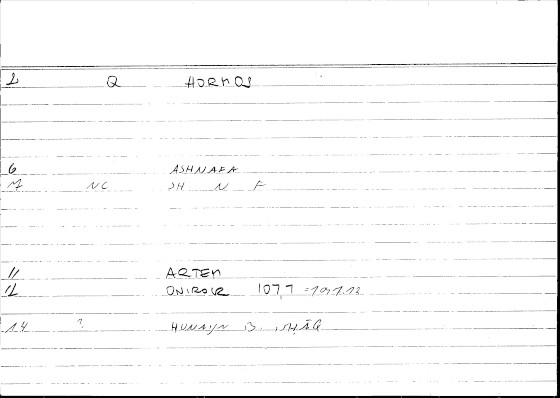 2 Q HORMOS
6 ASHNAFA
7 NC SH N F
11 ARTEM
12 ONIROCR 107,7
14 ? HUNAYN B. ISHĀQ